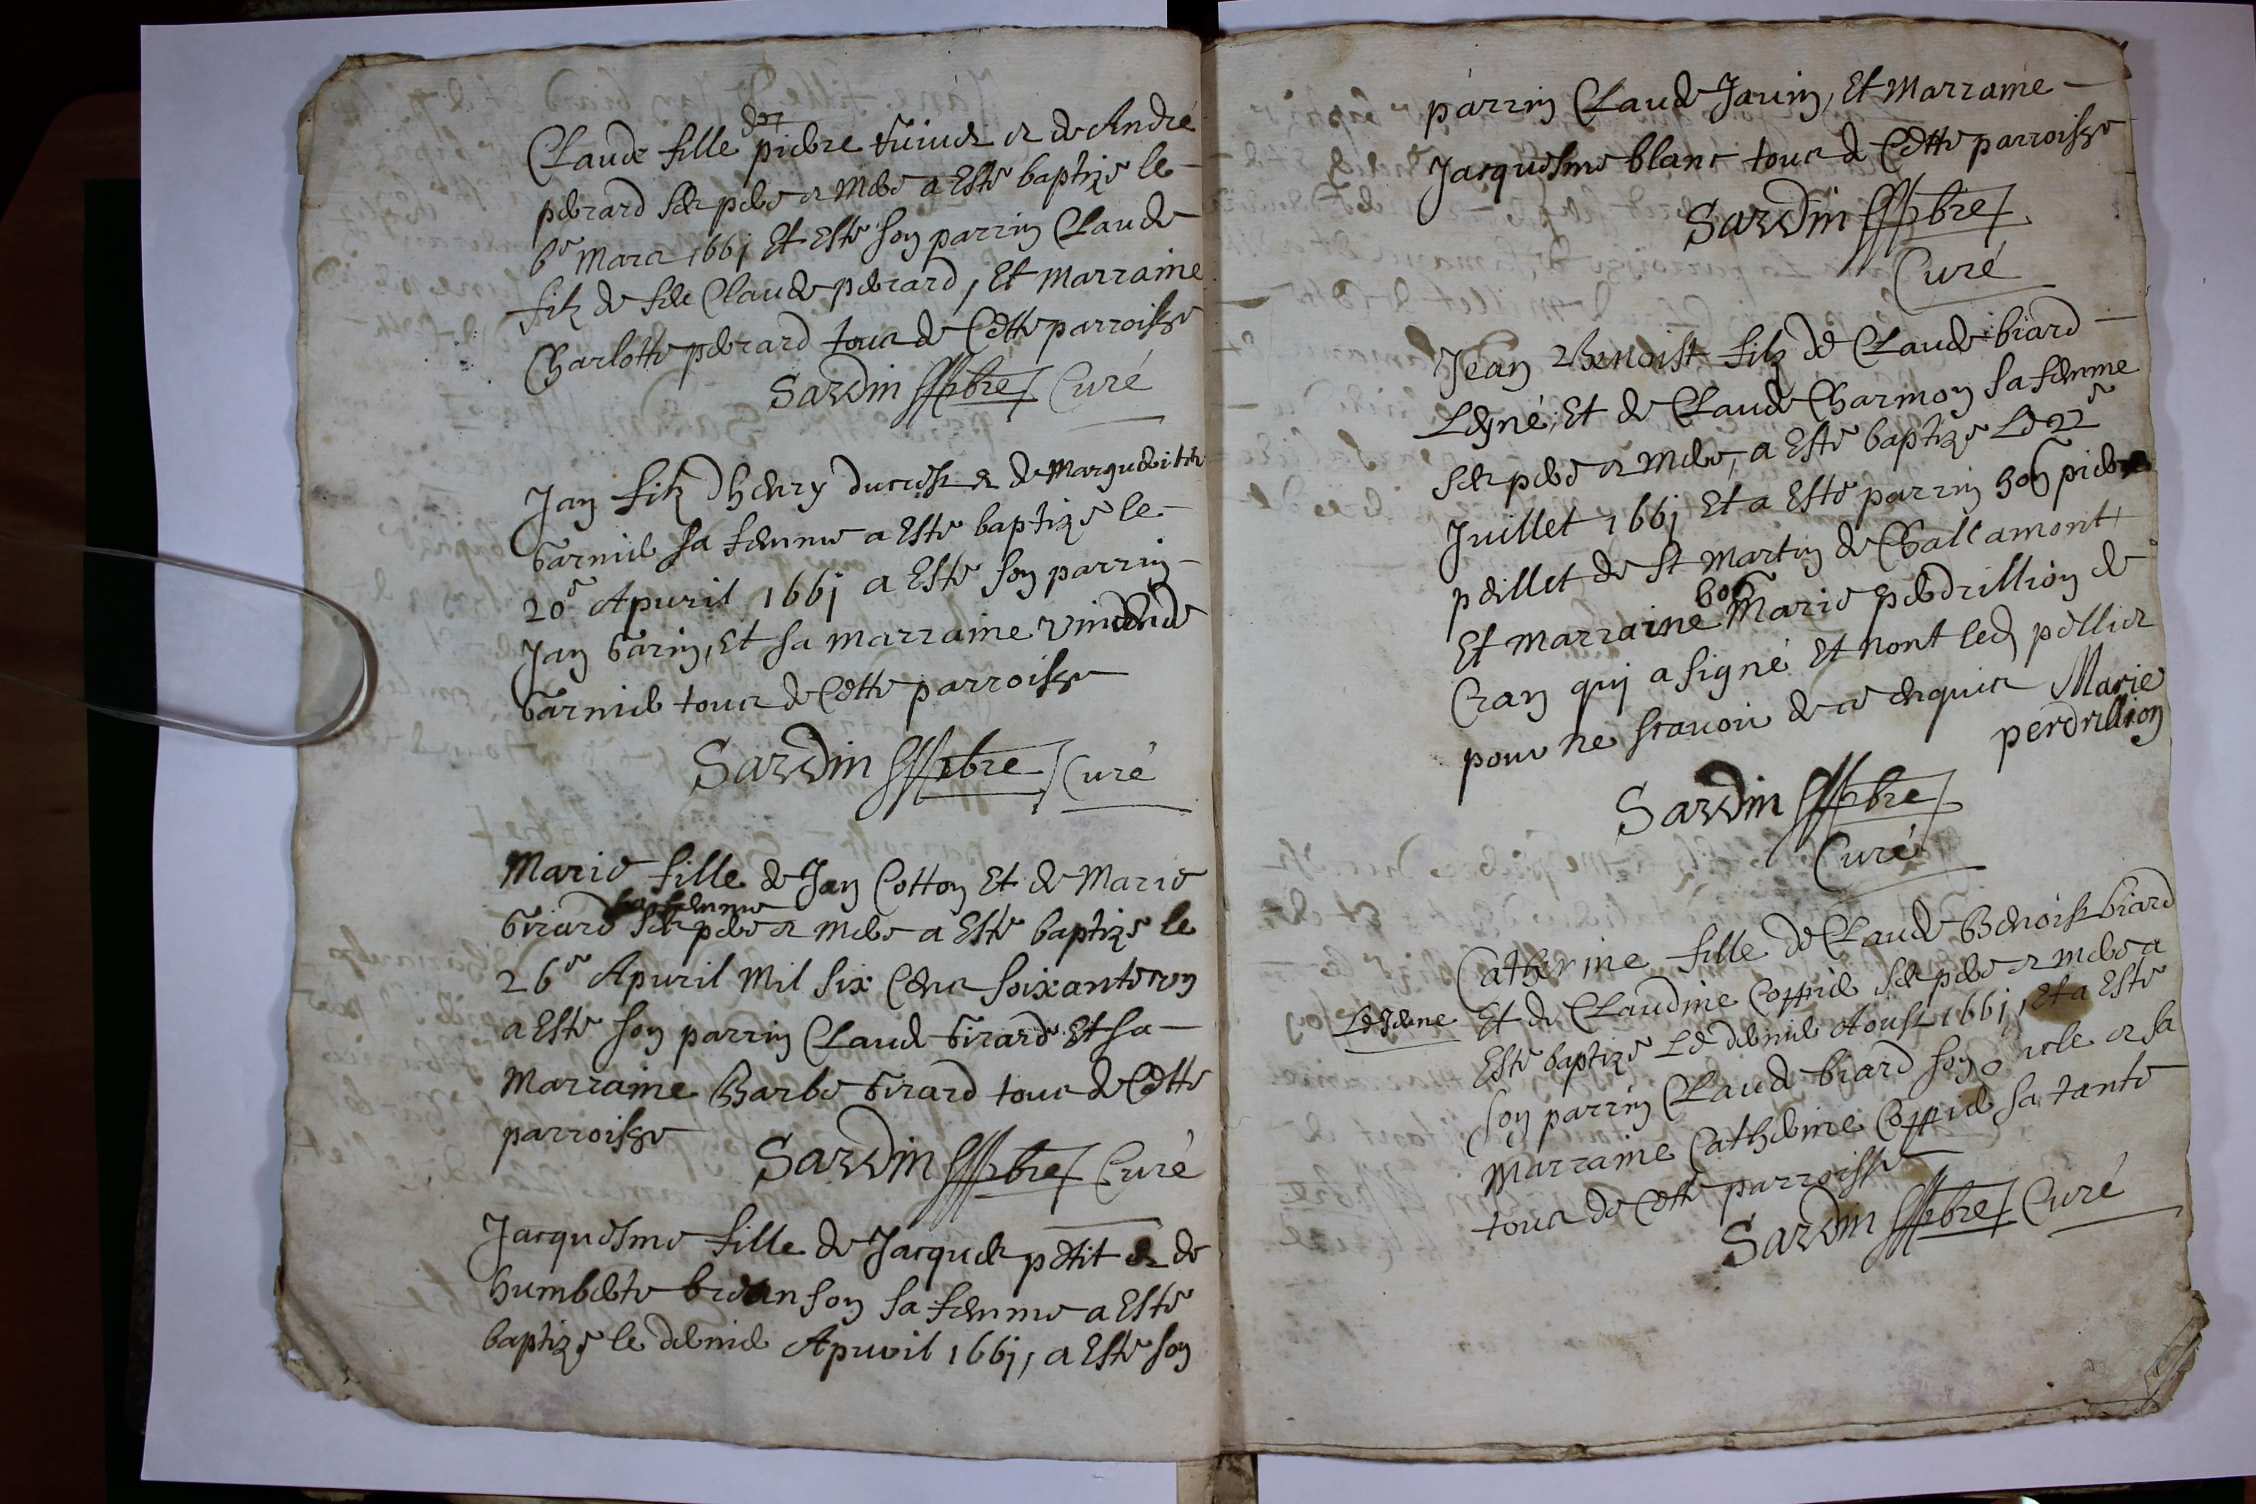 Claude fille de pierre et de Andre
perard ses pere et mere a Esté baptize le
6e Mars 1661 Et Esté son parrin Claude
filz de feu Claude perard, Et Marraine
Charlotte perard tous de Cette parroisse
Sardin pbre Curé
Jan filz dhenry ducrest et de Margueritte
Garnier sa femme a Esté baptizé le
20e Apuril 1661 a Esté son parrin
Jan Garin, Et sa marraine
Garnier tous de Cette parroisse
Sardin pbre Curé
Marie fille de Jan Cotton Et de Marie
sa femme
Girard ses pere et mere a Esté baptize le
26e Apuril Mil six Cens soixante un
a Esté son parrin Claude Girard Et sa
Marraine Barbe Girard tous de Cette
parroisse
Sardin pbre Curé
Jacquesme fille de Jacques petit et de
humberte sa femme a Esté
baptize le dernier Apuril 1661, a Esté son
parrin Claude Jauin, Et Marraine
Jacquesme blanc tous de Cette parroisse
Sardin pbre
Curé
Jean Benoist filz de Claude biard
Leyné, Et de Claude Charmon sa femme
ses pere et mere, a Esté baptize Le 22e
Juillet 1661 Et a Esté parrin hon pierre
peillet de St Martin de Challamont,
hon
Et Marraine Marie perdrillion de
Cran quj a signé Et nont led pellier
pour ne scauoir de ce enquis Marie
perdrillion
Sardin pbre
Curé
Catherine fille de Claude Benoist biard
Le Jeune Et de Claudine Coppier ses pere et mere a
Esté baptize Le dernier Aoust 1661, Et a Esté
son parrin Claude biard son oncle et sa
Marraine Catherine Coppier sa tante
tous de Cette parroisse
Sardin pbre Curé